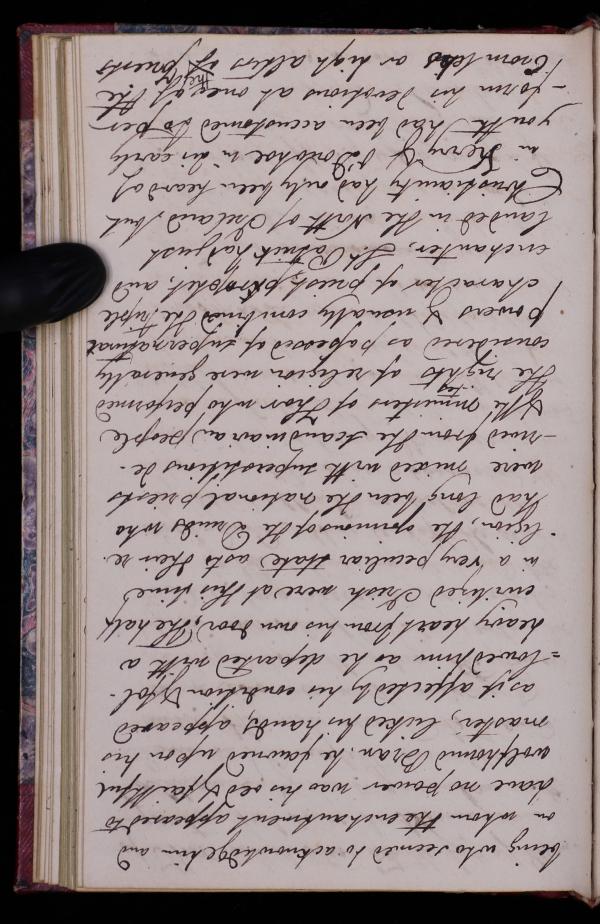 being who seemed to acknowledge him and
on whom the enchantment appeared to
have no power was his old & faithful
wolfhound Bran. he fawned upon his
master, licked his hands, appeared
as if affected by his condition & fol-
=lowed him as he departed with a
heavy heart from his own door, The half
civilized Irish were at this time
in a very peculiar state as to their re-
ligion, the opinions of the Druids who
had long been the national priests
were mixed with superstitions de-
-rived from the Scandinavian people
& the ministers of Thor who performed
the rights of religion were generally
considered as possessed of supernatural
powers & usually combined the triple
character of priest, prophet, and
enchanter, St. Patrick had just
landed in the North of Ireland, but
Christianity had only been heard of
in Kerry & O'Donoghoe in his early
youth had been accustomed to per
-form his devotions at one of the
Cromlehs or high altars of the priests